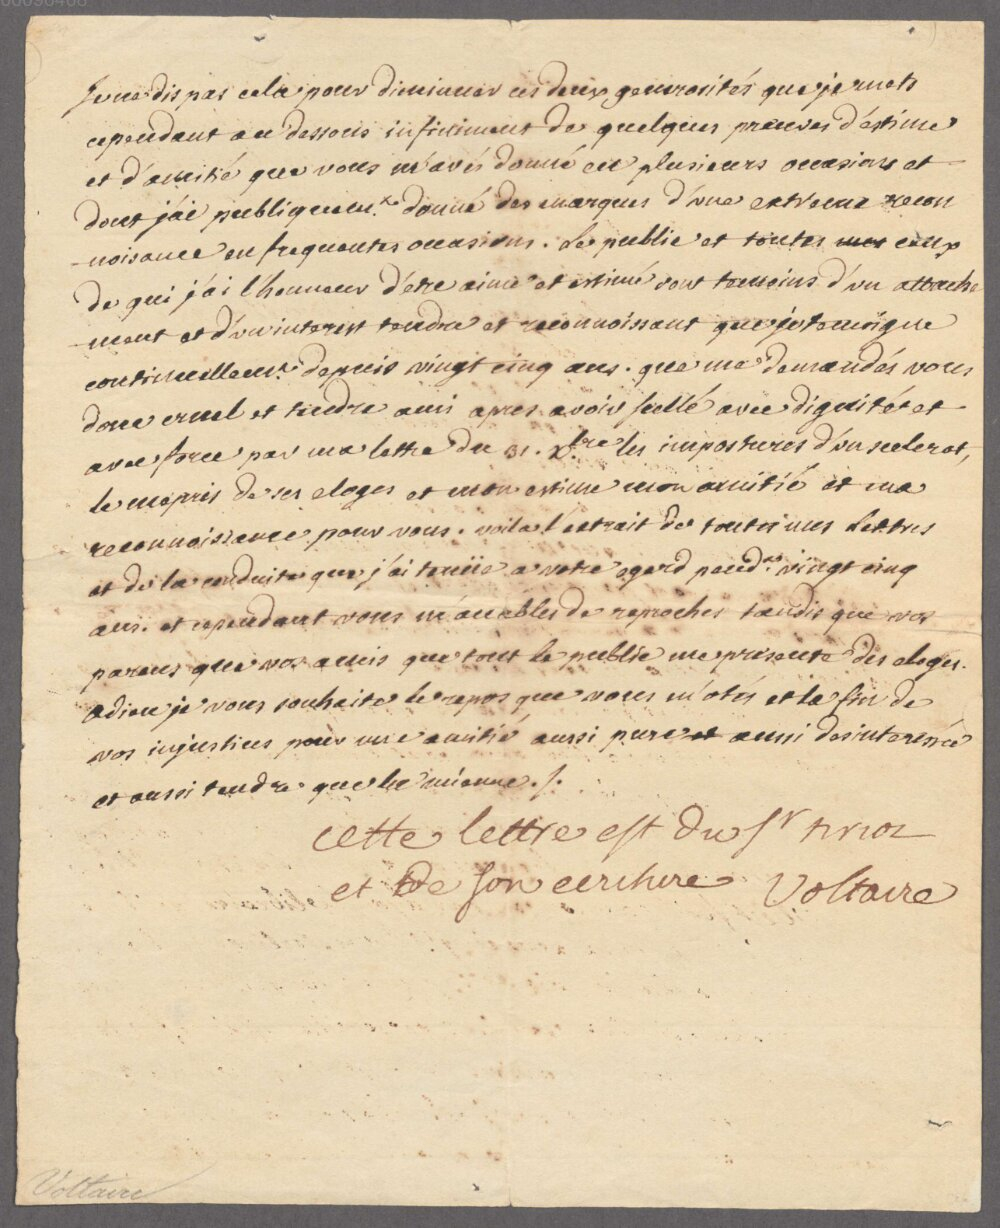 Je ne dis pas cela pour diminuer ces deux generosités que je mets
cependant au dessous infiniment de quelques preuves d'éstime
et d'amitié que vous m'avés donné en plusieurs occasions et
dont j'ai publiquemt. donné des marques d'une extreme recon
noisance en frequentes occasions. Le public et toutes mes ceux
de qui j'ai l'honneur d'étre aimé et estimé sont temoins d'un attache
ment et d'un interest tendre et reconnoissant que je temoigne
continuellemt. depuis vingt cinq ans. que me demandés vous
donc cruel et tendre ami apres avoir scellé avec dignitét et
avec force par ma lettre du 31. Xbre les impostures d'un scelerat,
le mepris de ses eloges et mon estime mon amitié et ma
reconnoissance pour vous. voila l'extrait de toutes mes Lettres
et de la conduite que j'ai tenüe a votre egard pendt. vingt cinq
ans. et cependant vous m'acablés de reproches tandis que vos
parens que vos amis que tout le public me presente des eloges.
adieu je vous souhaite le repos que vous m'otés et la fin de
vos injustices pour une amitié aussi pure et aussi desinteressé
et aussi tendre que la mienne./.
cette lettre est du Sr tiriot
et de son ecriture Voltaire
Voltaire